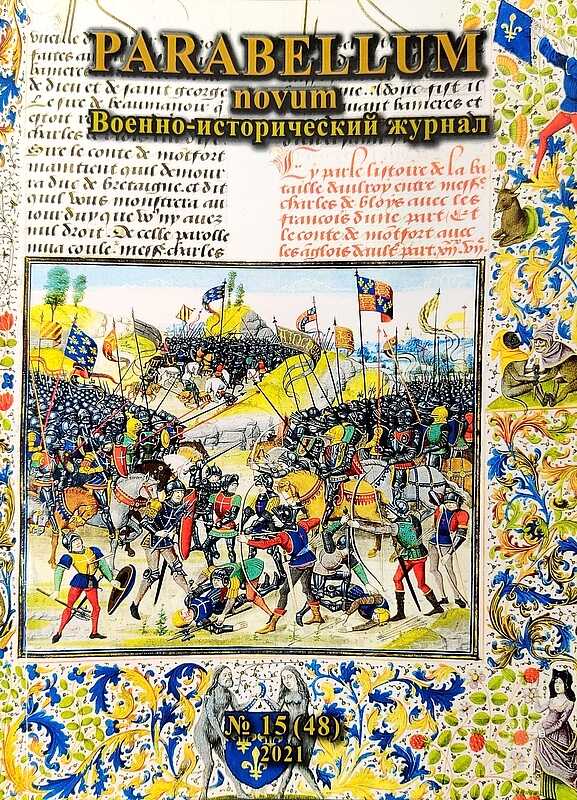 PARABELLUM
novum
Военно-исторический журнал
de dieu et de saint george
Sire le conte de motfort
maintient quil demour
ra duc de bretaigne et dit
quil vous monstrera au
iour duy que
nul droit. De celle parolle
mess charles
Cy parle listoire de la ba
taille daulroy entre mess
charles de bloys avec les
francois dune part Et
le conte de motfort avec
les anglois
№ 15 (48)
2021